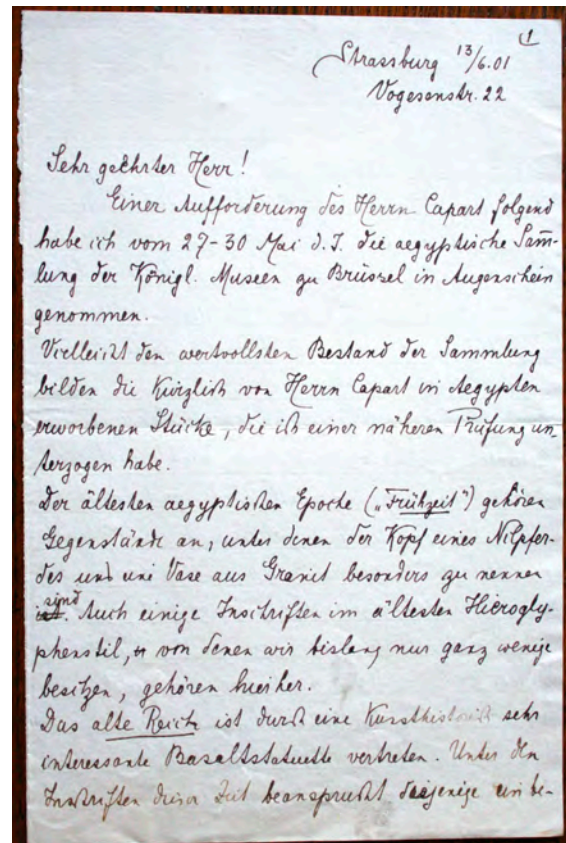 1
Strassburg 13/6.01
Vogesenstr. 22
Sehr geehrter Herr!
Einer Aufforderung des Herrn Capart folgend
habe ich vom 27-30 Mai d. J. die aegyptische Samm-
lung der Königl. Museen zu Brüssel in Augenschein
genommen.
Vielleicht den wertvollsten Bestand der Sammlung
bilden die kürzlich von Herrn Capart in Aegypten
erworbenen Stücke, die ich einer näheren Prüfung un-
terzogen habe.
Der ältesten aegyptischen Epoche („Frühzeit“) gehören
Gegenstände an, unter denen der Kopf eines Nilpfer-
des und eine Vase aus Granit besonders zu nennen
sind. Auch einige Inschriften im ältesten Hierogly-
phenstil, von denen wir bislang nur ganz wenige
besitzen, gehören hierher.
Das alte Reich ist durch eine kunsthistorisch sehr
interessante Basaltstatuette vertreten. Unter den
Inschriften dieser Zeit beansprucht diejenige ein be-